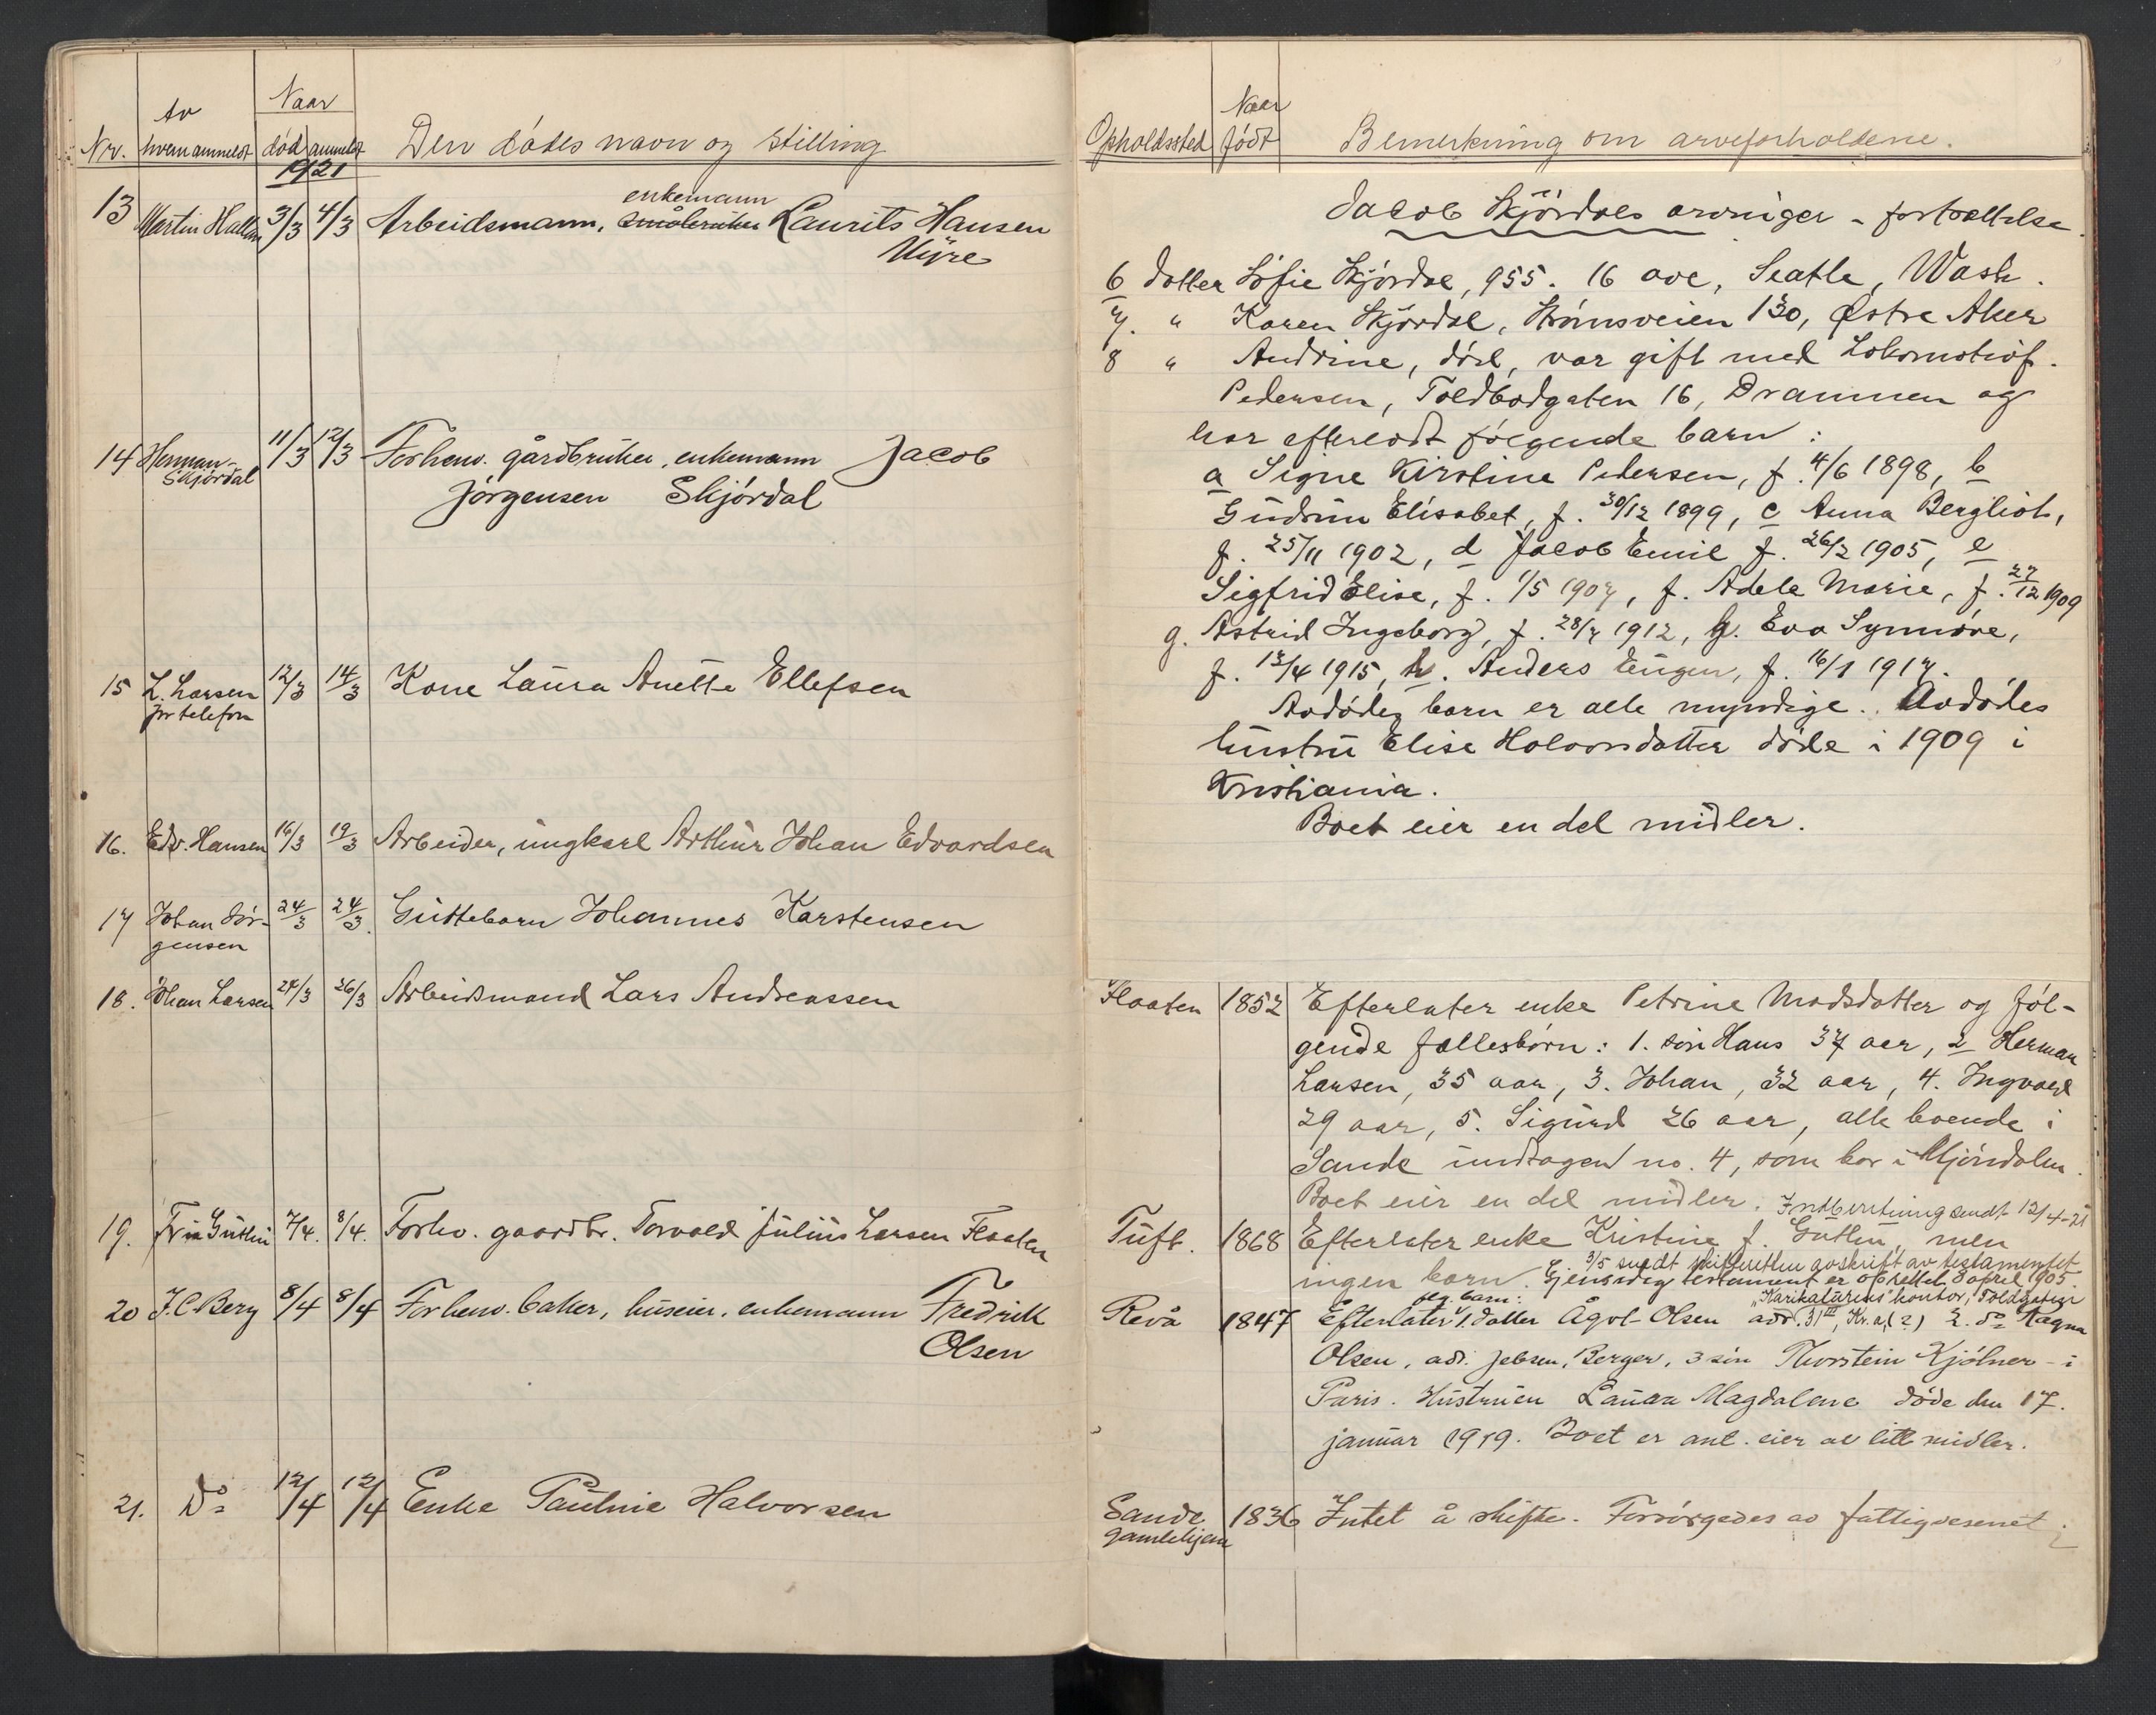 Nr.
Av
hvem anmeldt
Naar
död
anmeldt
Den dödes navn og stilling
1921
13
Martin Hallan
3/3
4/3
enkemann
Arbeidsmann, småbruker Laurits Hansen
Myre
14
Herman
Skjördal
11/3
12/3
Forhenv. gårdbruker, enkemann Jacob
Jörgensen Skjördal
15
L. Larsen
pr telefon
12/3
14/3
Kone Laura Anette Ellefsen
16.
Edv. Hansen
16/3
19/3
Arbeider, ungkarl Arthur Johan Edvardsen
17
Johan Jör-
gensen
24/3
24/3.
Guttebarn Johannes Karstensen
18.
Johan Larsen
24/3
26/3
Arbeidsmand Lars Andreassen
19.
Fru Gutlin
7/4.
8/4.
Forhv. gaardbr. Torvald Julius Larsen Flaaten
20
J. C. Berg
8/4
8/4
Forhenv. baker, huseier, enkemann Fredrik
Olsen
21.
Do
12/4
12/4
Enke Pauline Halvorsen
Opholdssted
Naar
födt
Bemerkning om arveforholdene.
Jacob Skjördals arvinger - fortsættelse.
6 datter Sofie Skjördal, 955. 16 ave, Seatle, Wash.
7. " Karen Skjördal, Strömsveien 130, Østre Aker
8 " Andrine, död, var gift med Lokomotivf.
Pedersen, Toldbodgaten 16, Drammen og
har efterladt følgende barn :
a Signe Kirstine Pedersen, f. 4/6 1898, b
Gudrun Elisabet, f. 30/12 1899, c Anna Bergliot,
f. 25/11 1902, d Jacob Emil f. 26/2 1905, e
Sigfrid Elise, f. 1/5 1907, f. Adele Marie, f. 27/12 1909
g. Astrid Ingeborg, f. 28/7 1912, h. Eva Synnöve,
f. 13/4 1915, h. Anders Eugen, f. 16/1 1917.
Avdödes barn er alle myndige. Avdödes
hustru Elise Halvorsdatter döde i 1909 i
Kristiania.
Boet eier en del midler.
Flaaten
1852
Efterlater enke Petrine Madsdatter og föl-
gende fællesbörn : 1. sön Hans 37 aar, 2 Herman
Larsen, 35 aar, 3. Johan, 32 aar, 4. Ingvald
29 aar, 5. Sigurd 26 aar, alle boende i
Sande undtagen no. 4, som bor i Mjöndalen.
Boet eier en del midler. Indberetning sendt 12/4-21
Tuft.
1868
Efterlater enke Kristine f. Gutlin, men
3/5 sendt skifteretten avskrift av testamentet
ingen barn. Gjensidig testament er oprettet 8 april 1905.
Revå
1847
flg. barn:
"Karikaturens" kontor, Toldgaten
Efterlater 1. datter Ågot Olsen adr. 31 III, Kr.a, (2) 2. do Ragna
Olsen, adr. Jebsen, Berger, 3 sön Thorstein Kjölner i
Paris. Hustruen Laura Magdalene döde den 17.
januar 1919. Boet er ant. eier av litt midler.
Sande
gamlehjem
1836
Intet å skifte. Forsörgedes av fattigvesenet